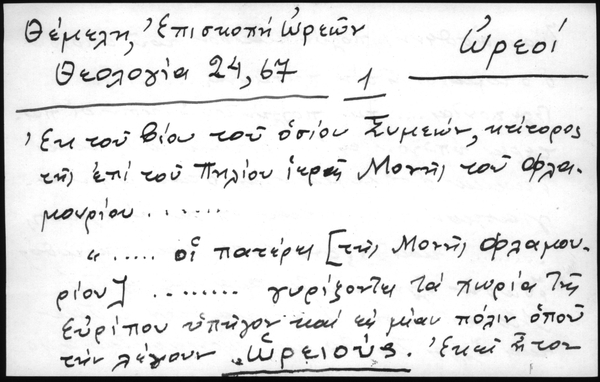 Θέμελη, Ἐπισκοπή Ὠρεῶν
Ὠρεοί
Θεολογία 24, 67
1
Ἐκ τοῦ βίου τοῦ ὁσίου Συμεών, κτίτορος
τῆς ἐπί τοῦ Πηλίου ἱερᾶς Μονῆς τοῦ Φλα-
μουρίου .......
"..... οἱ πατέρες [τῆς Μονῆς Φλαμου-
ρίου] ........ γυρίζοντες τά χωρία τῆς
Εὐρίπου ὑπῆγον καί εἰς μίαν πόλιν ὁποῦ
τήν λέγουν Ὠρειούς. Ἐκεῖ ἦτον